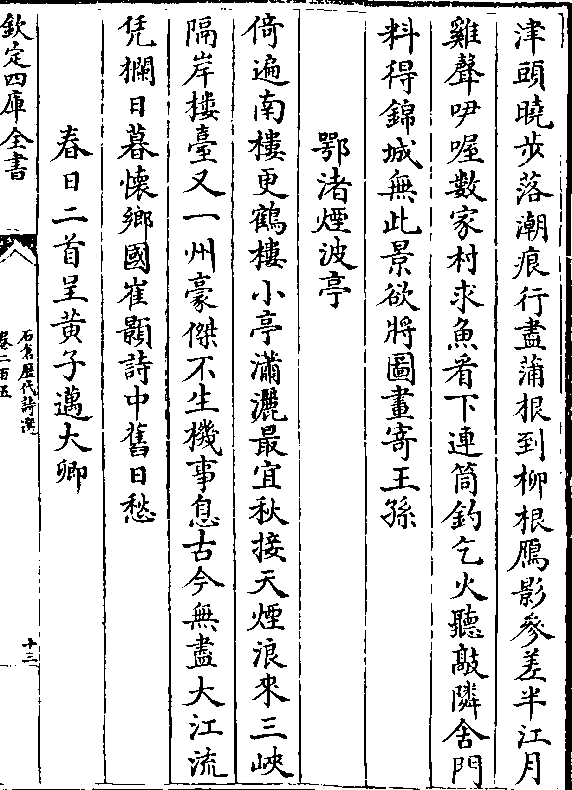 津頭曉步落潮痕行盡蒲根到柳根鴈影參差半江月
雞聲咿喔數家村求魚看下連筒釣乞火聽敲隣舍門
料得錦城無此景欲將圖畫寄王孫
鄂渚煙波亭
倚遍南樓更鶴樓小亭瀟灑最宜秋接天煙浪來三峽
隔岸樓臺又一州豪傑不生機事息古今無盡大江流
凭欄日暮懷鄉國崔顥詩中舊日愁
春日二首呈黄子邁大卿
欽定四庫全書
石倉歴代詩選
卷二百五
十三